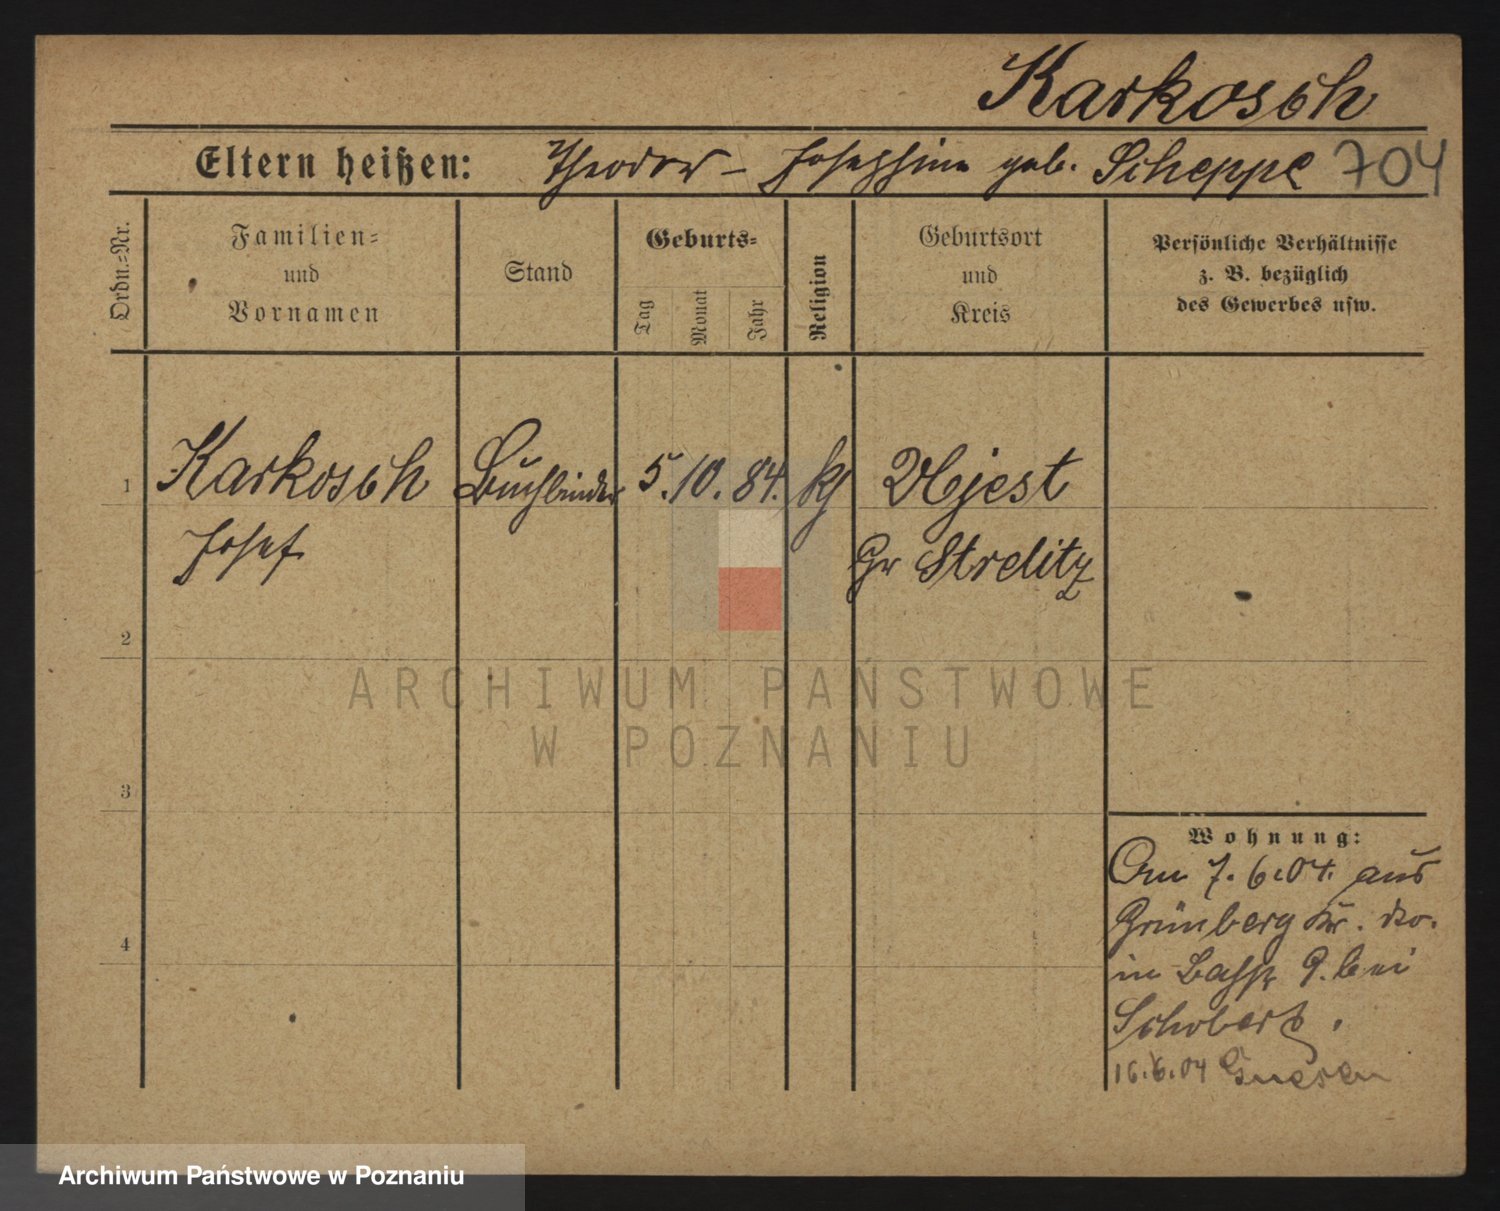 Karkosch
Eltern heißen: Theodor – Josephine geb. Scheppe 704
Ordn.=Nr.
Familien=
und
Vornamen
Stand
Geburts=
Tag
Monat
Jahr
Religion
Geburtsort
und
Kreis
Persönliche Verhältnisse
z. B. bezüglich
des Gewerbes usw.
1 Karkosch Buchbinder 5. 10. 84. kf Ujest
Josef Gr Strelitz
2
3
4
Wohnung:
Am 7. 6. 04. aus
Grünberg Kr. do.
in 9. bei
Schobert.
16.6.04 Gnesen
ARCHIWUM PAŃSTWOWE
W POZNANIU
Archiwum Państwowe w Poznaniu